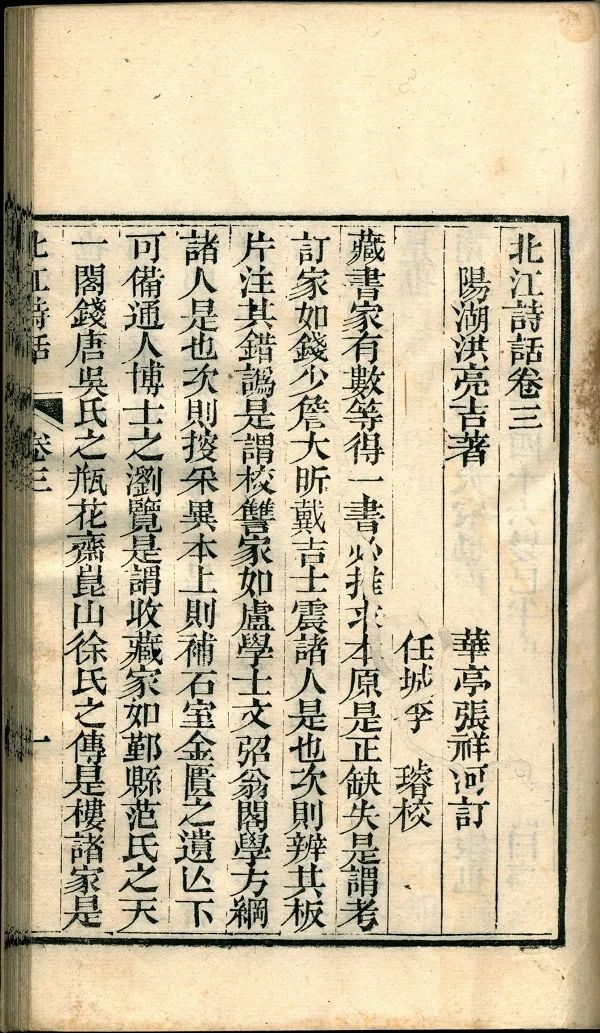 北江詩話卷三
陽湖洪亮吉著 華亭張祥河訂
任城李 璿校
藏書家有數等得一書必推求本原是正缺失是謂考
訂家如錢少詹大昕戴吉士震諸人是也次則辨其板
片注其錯譌是謂校讐家如盧學士文弨翁閣學方綱
諸人是也次則搜采異本上則補石室金匱之遺亾下
可備通人博士之瀏覽是謂收藏家如鄞縣范氏之天
一閣錢唐吳氏之瓶花齋崑山徐氏之傳是樓諸家是
北江詩話 卷三 一